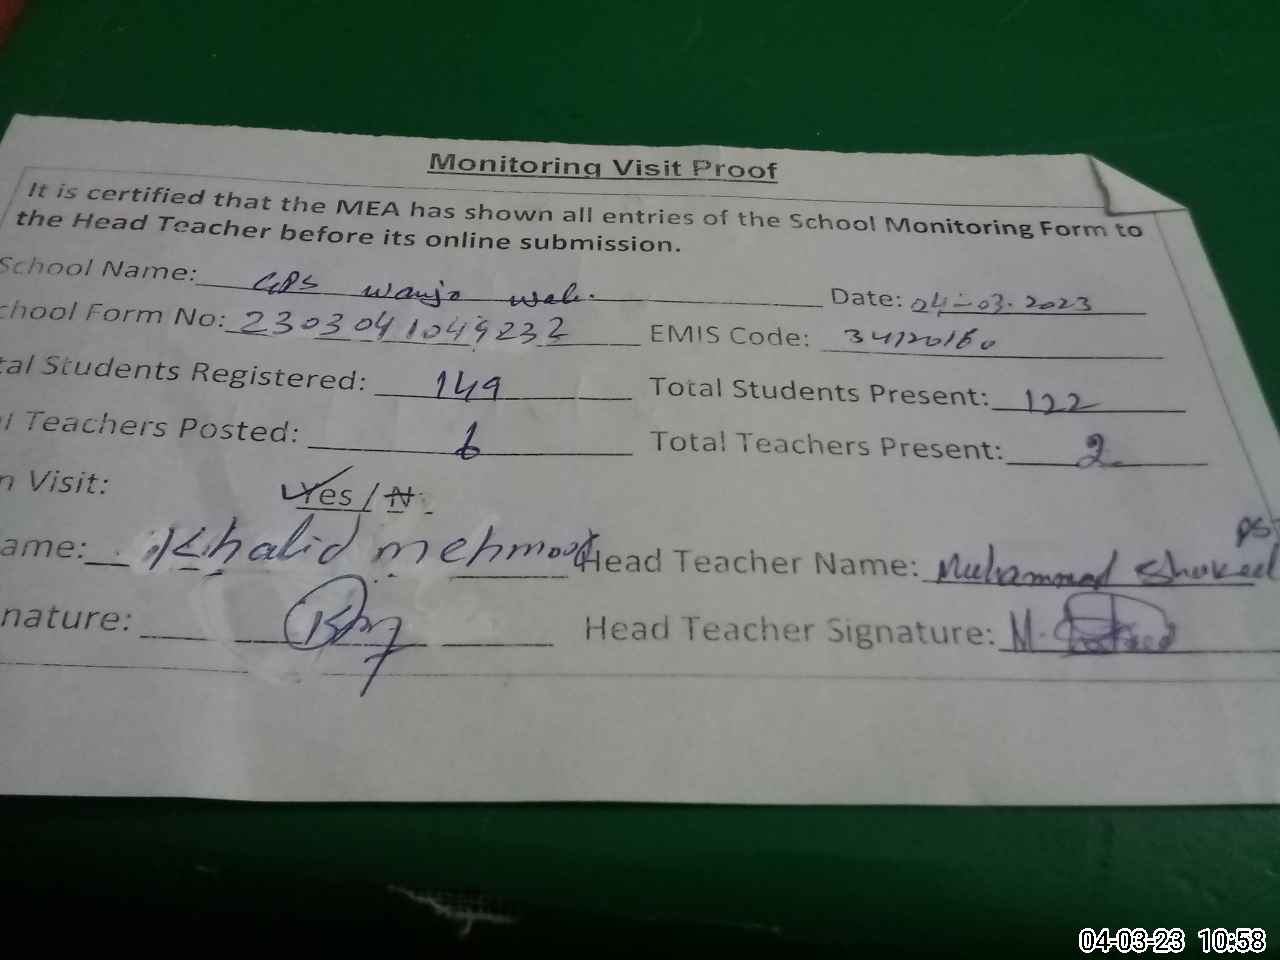 Monitoring Visit Proof
It is certified that the MEA has shown all entries of the School Monitoring Form to
the Head Teacher before its online submission.
School Name: GPS Wanjo Wali Date: 04-03-2023
chool Form No: 2303041049232 EMIS Code: 34120160
tal Students Registered: 149 Total Students Present: 122
l Teachers Posted: 6 Total Teachers Present: 2
n Visit: Yes / N
ame: Khalid mehmood Head Teacher Name: Muhammad Shakeel PST
nature: Head Teacher Signature: M.
04-03-23 10:58